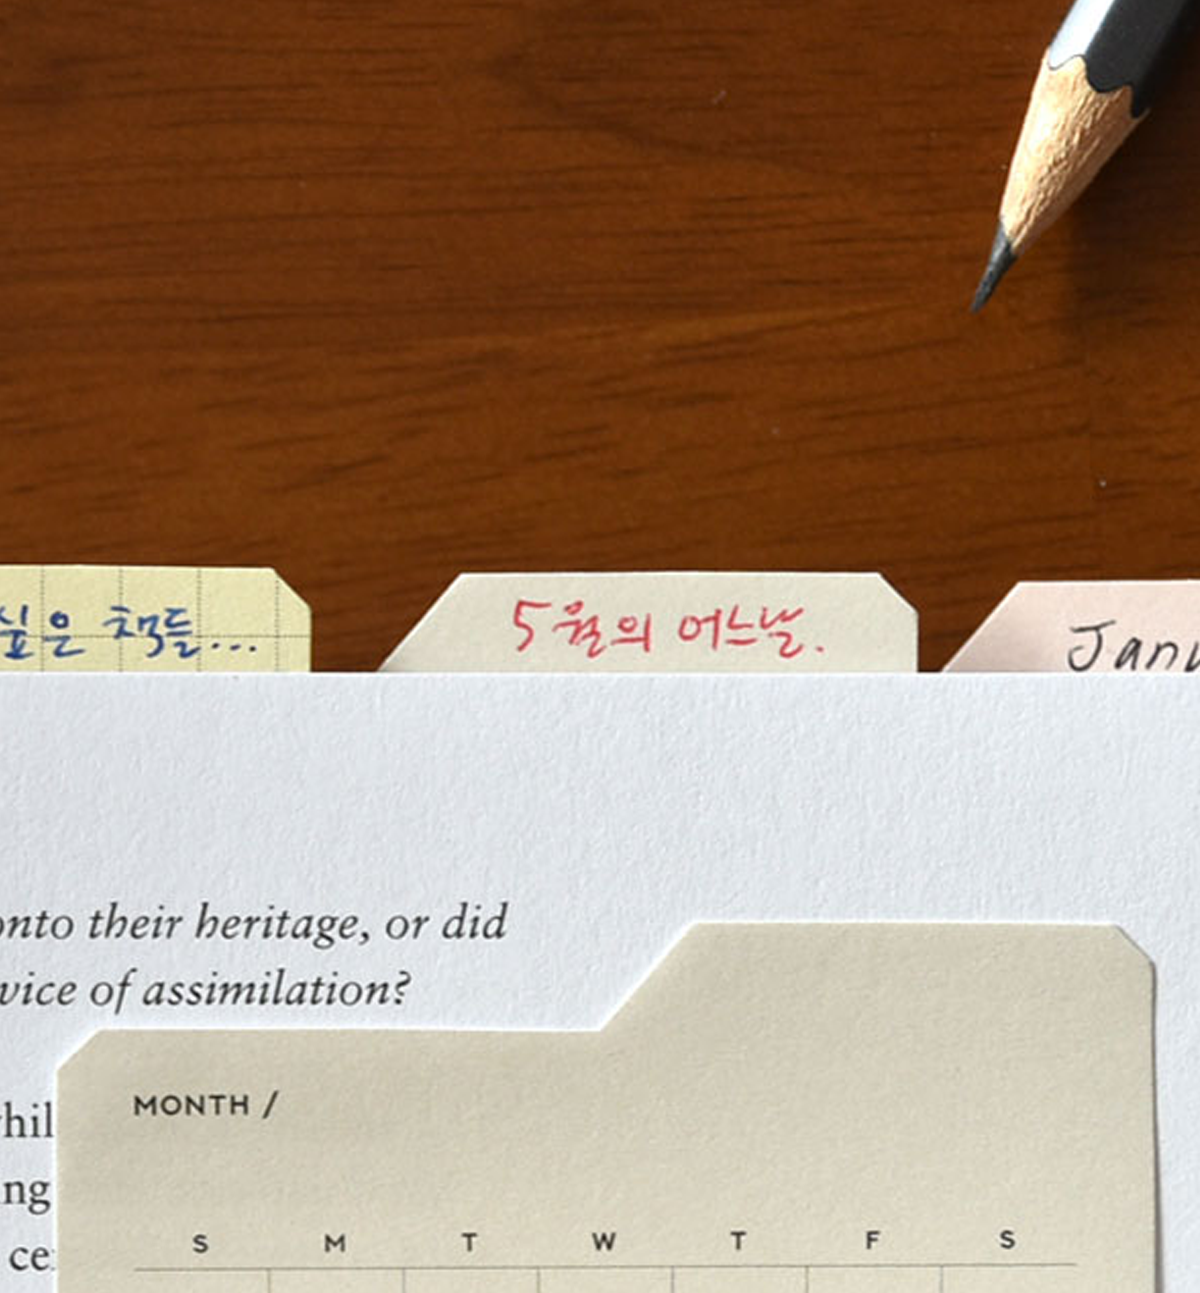 싶은 책들...
5월의 어느날.
Janu
onto their heritage, or did
vice of assimilation?
MONTH /
whil
ng
ce
S M T W T F S